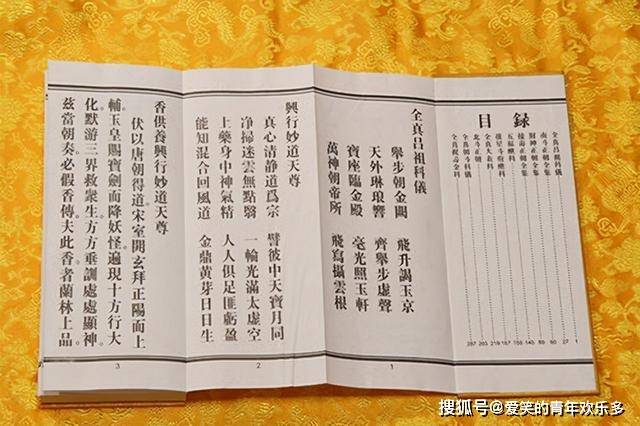 目 録
全真呂祖科儀
南斗正朝全集
財神正朝全集
五福醮科
全真大表科
北斗正朝
全真呂祖科儀
舉步朝金闕 飛升謁玉京
天外琳琅響 齊舉步虛聲
寶座臨金殿 毫光照玉軒
萬神朝帝所 飛寫攝雲根
1
興行妙道天尊
真心清静道爲宗 譬彼中天寶月同
净掃迷雲無點翳 一輪光滿太虛空
上藥身中神氣精 人人俱足匪虧盈
能知混合回風道 金鼎黄芽日日生
2
香供養興行妙道天尊
伏以唐朝得道。宋室開玄拜正陽而上
輔。玉皇賜寶劍而降妖怪。遍現十方。行大
化。默游三界。救衆生。方方垂訓。處處顯神。
兹當朝奏。必假香傳。夫此香者。蘭林上品。
3
搜狐号@爱笑的青年欢乐多